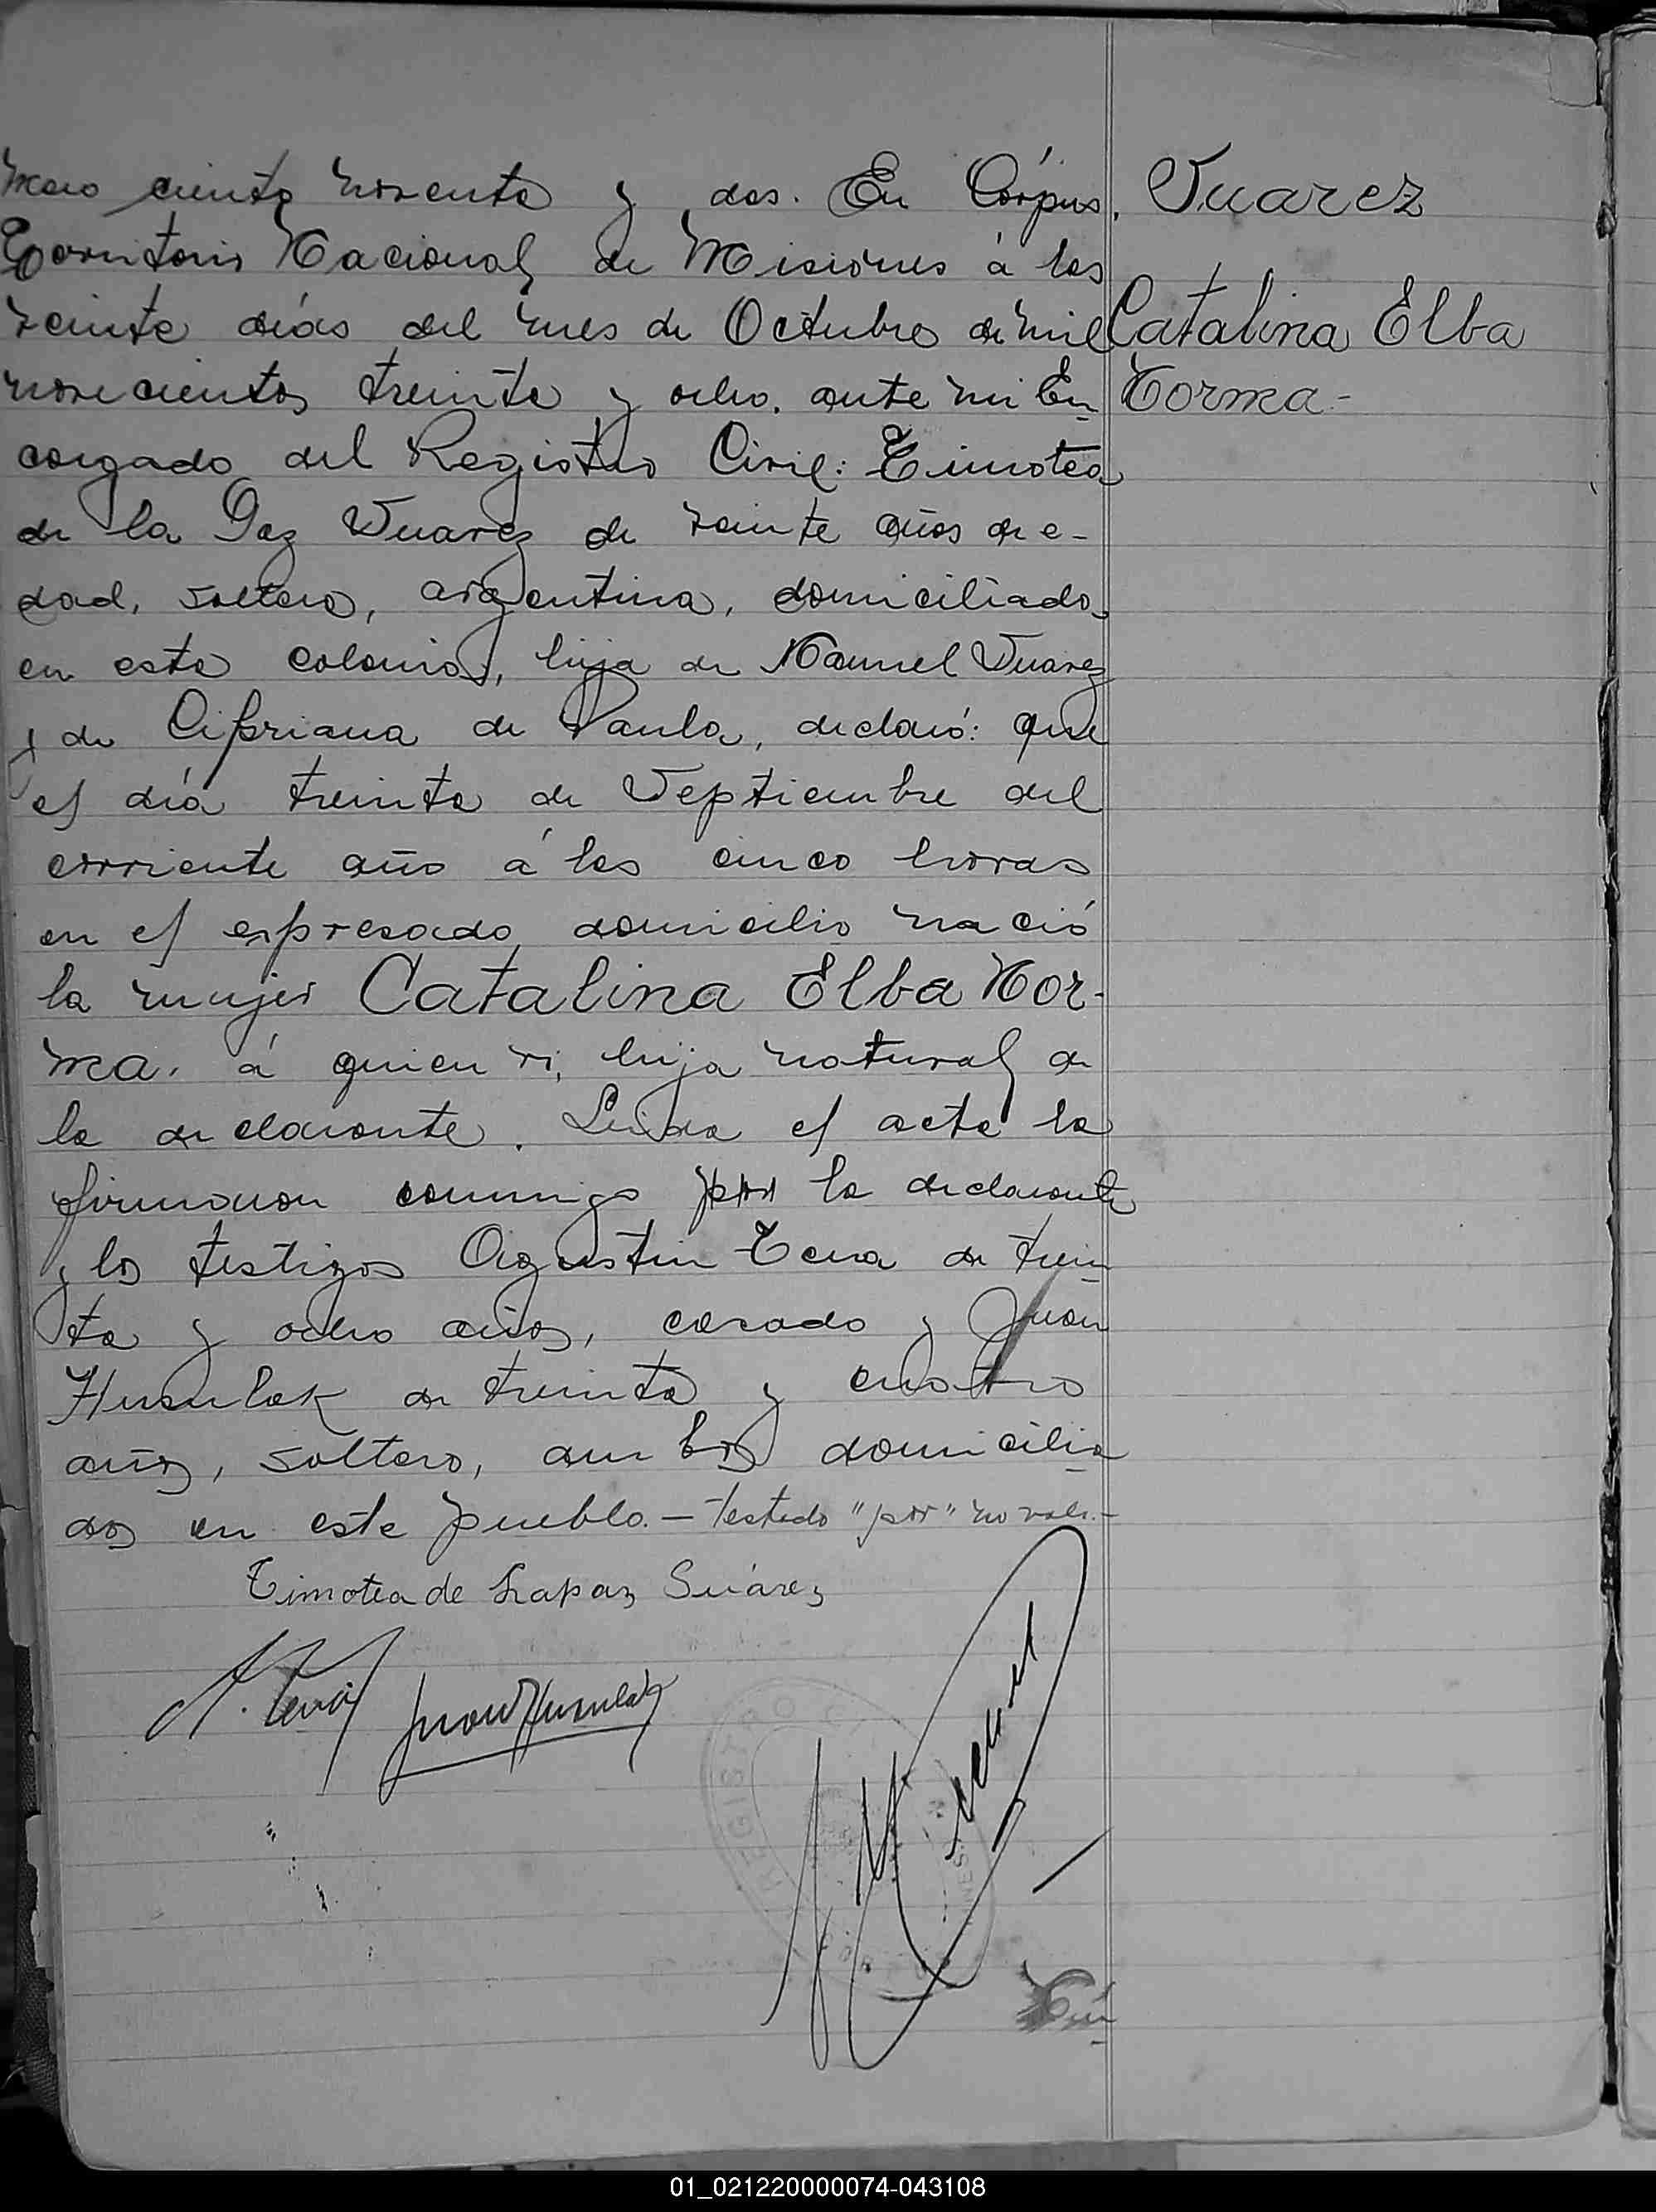 mero ciento noventa y dos. En Córpus,
Territorio Nacional de Misiones á los
veinte días del mes de Octubre de mil
novecientos treinta y ocho. ante mi En
cargado del Registro Civil: Timotea
de la Paz Suarez de veinte años de e-
dad, soltera, argentina, domiciliada
en esta colonia, hija de Manuel Suarez
y de Cipriana de Paula, declaró: que
el día treinta de Septiembre del
corriente año á las cinco horas
en el expresado domicilio nació
la mujer Catalina Elba Nor-
ma. á quien vi, hija natural de
la declarante. Leida el acta la
firmaron conmigo por la declarante
y los testigos Agustin Tena de trein
ta y ocho años, casado y Juan
Husulak de treinta y cuatro
años, soltero, ambos domicilia
dos en este pueblo. — testado "por" no vale.—
Timotea de Lapaz Suárez
A. Tena Juan Husulak
REGISTRO
Nú
Suarez
Catalina Elba
Norma.-
01_021220000074-043108